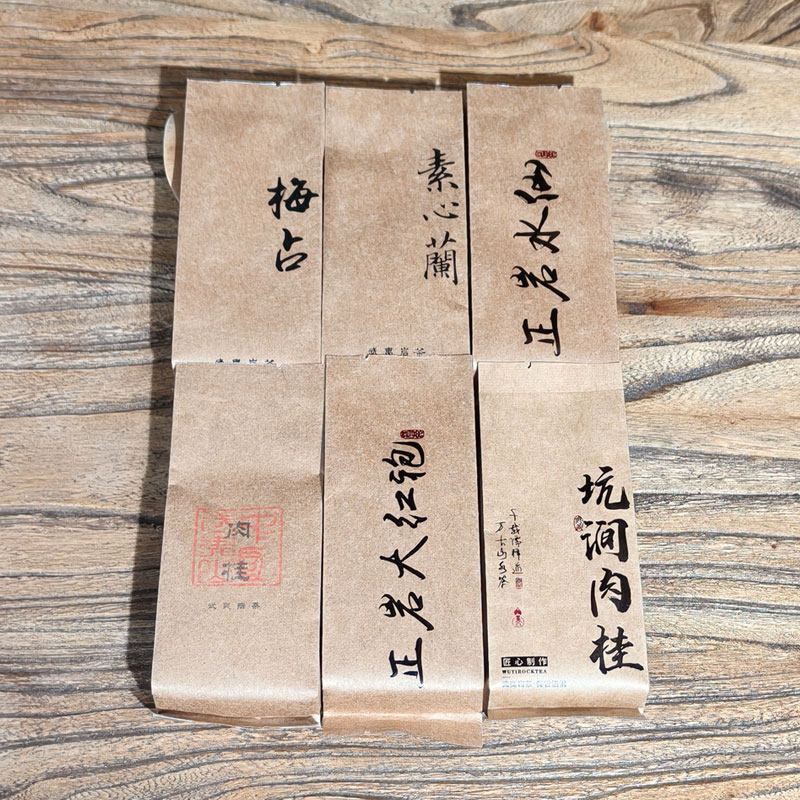 梅占
素心蘭
正岩水仙
肉桂
武夷岩茶
正岩大红袍
坑涧肉桂
千載儒釋道
万古山水茶
匠心制作
WUYIROCKTEA